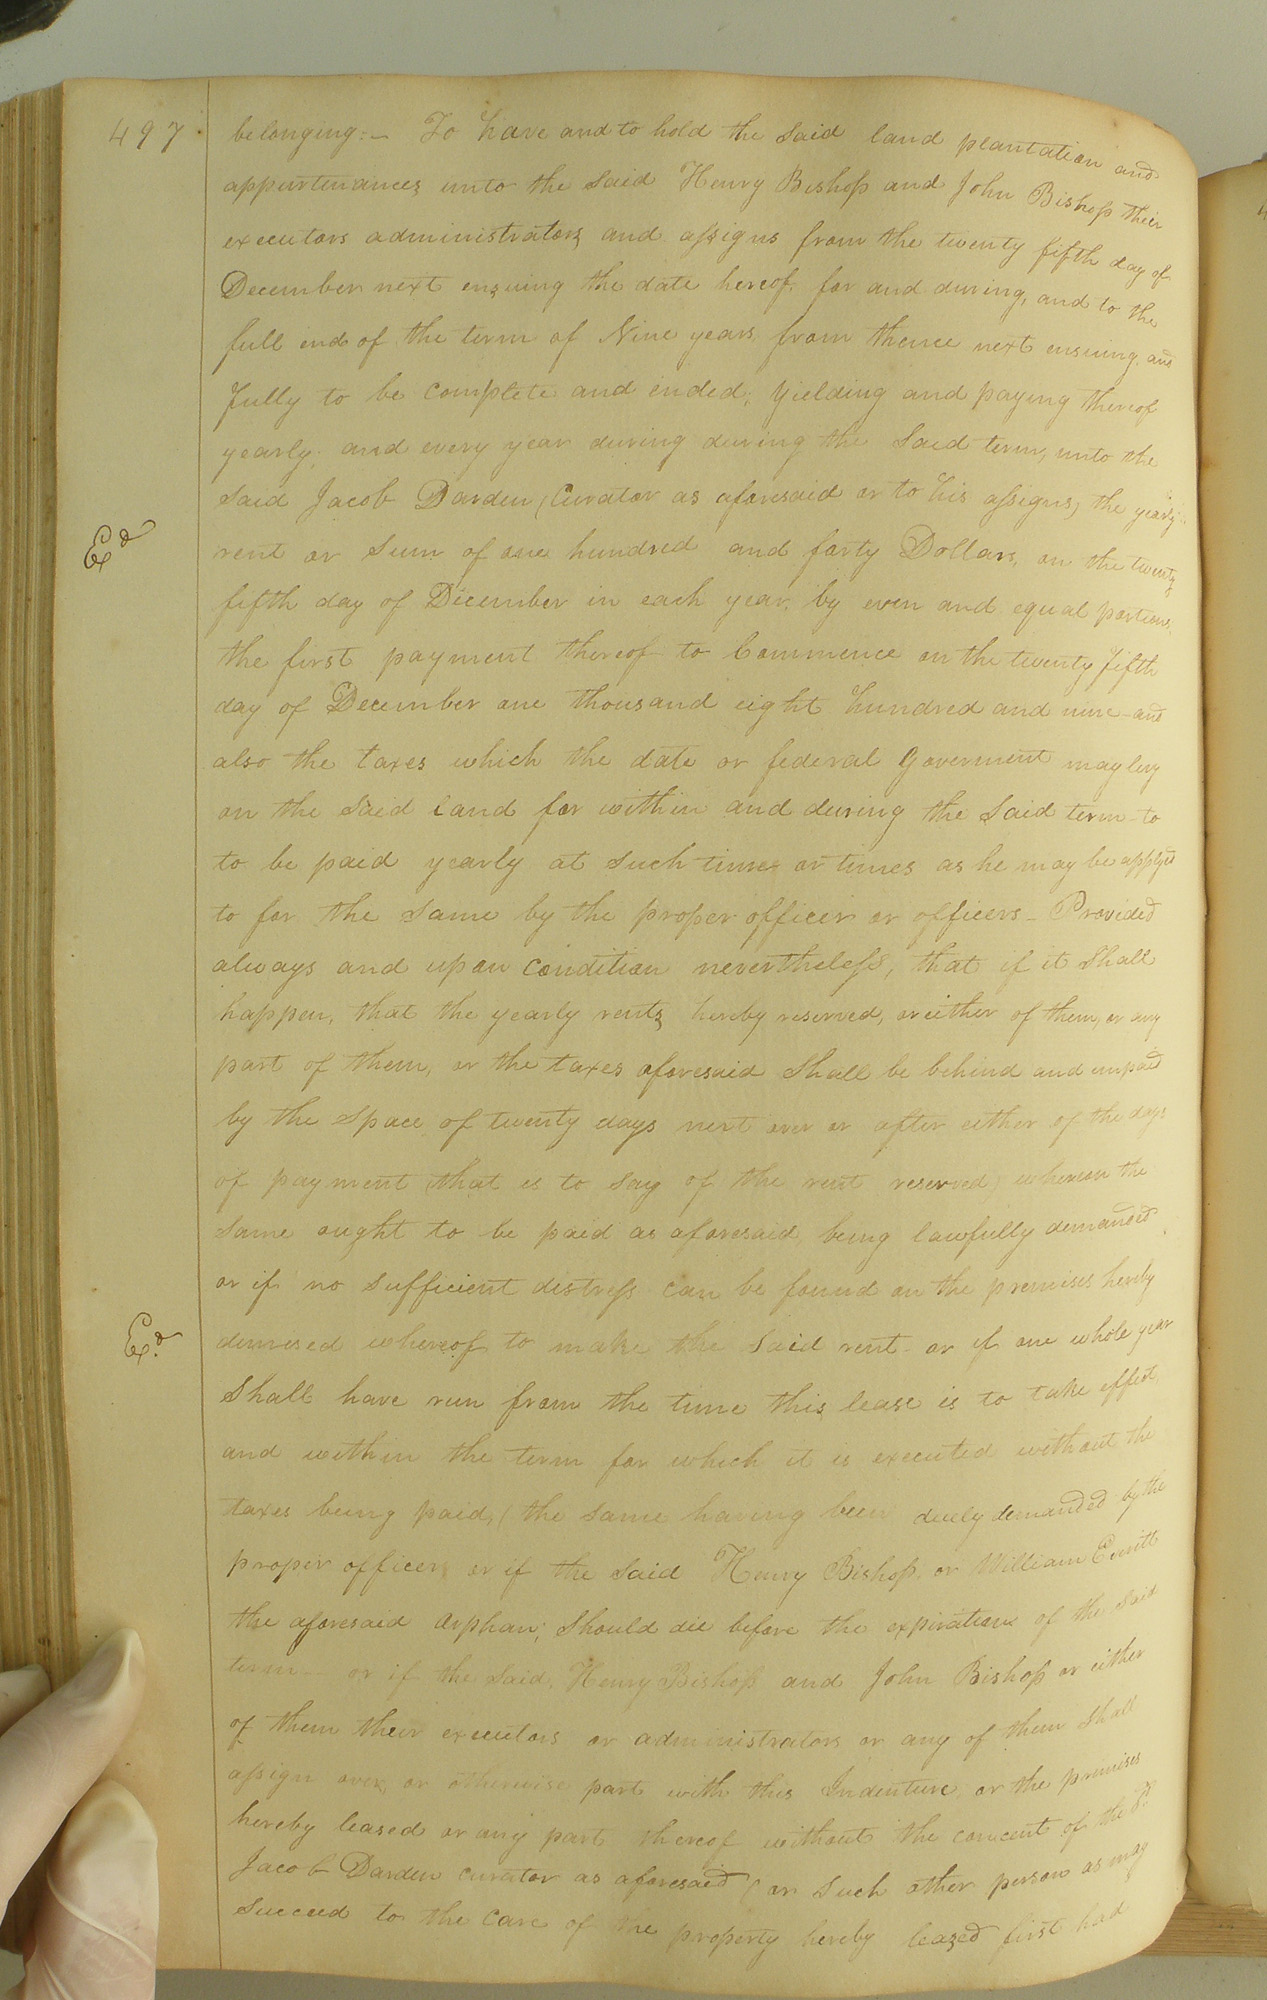 497
belonging:- To have and to hold the said land plantation and
appurtenances unto the said Henry Bishop and John Bishop their
executors administrators and assigns from the twenty fifth day of
December next ensuing the date hereof, for and during, and to the
full end of the term of Nine years from thence next ensuing and
fully to be complete and ended; yielding and paying thereof
yearly, and every year during during the said term, unto the
said Jacob Darden (Curator as aforesaid or to his assigns) the yearly
Exd
rent or sum of one hundred and forty Dollars, on the twenty
fifth day of December in each year, by even and equal portions,
the first payment thereof to Commence on the twenty fifth
day of December one thousand eight hundred and nine - and
also the taxes which the date or federal Goverment may levy
on the said land for within and during the said term - to
to be paid yearly at such time or times as he may be applyed
to for the same by the proper officer or officers - Provided
always and upon condition nevertheless, that if it shall
happen, that the yearly rents hereby reserved, or either of them, or any
part of them, or the taxes aforesaid shall be behind and unpaid
by the space of twenty days next over or after either of the days
of payment (that is to say of the rent reserved) wherein the
same ought to be paid as aforesaid, being lawfully demanded
or if no sufficient distress can be found on the premises hereby
Exd.
demised whereof to make the said rent - or if one whole year
shall have run from the time this lease is to take effect,
and within the term for which it is executed without the
taxes being paid, (the same having been duely demanded by the
proper officer or if the said Henry Bishop, or William Everitt
the aforesaid orphan; should die before the expiration of the said
term - or if the said, Henry Bishop and John Bishop or either
of them their executors or administrators or any of them shall
assign over or otherwise part with this Indenture or the premises
hereby leased or any part thereof without the concent of the Sd.
Jacob Darden curator as aforesaid (or such other person as may
succeed to the care of the property hereby leased first had